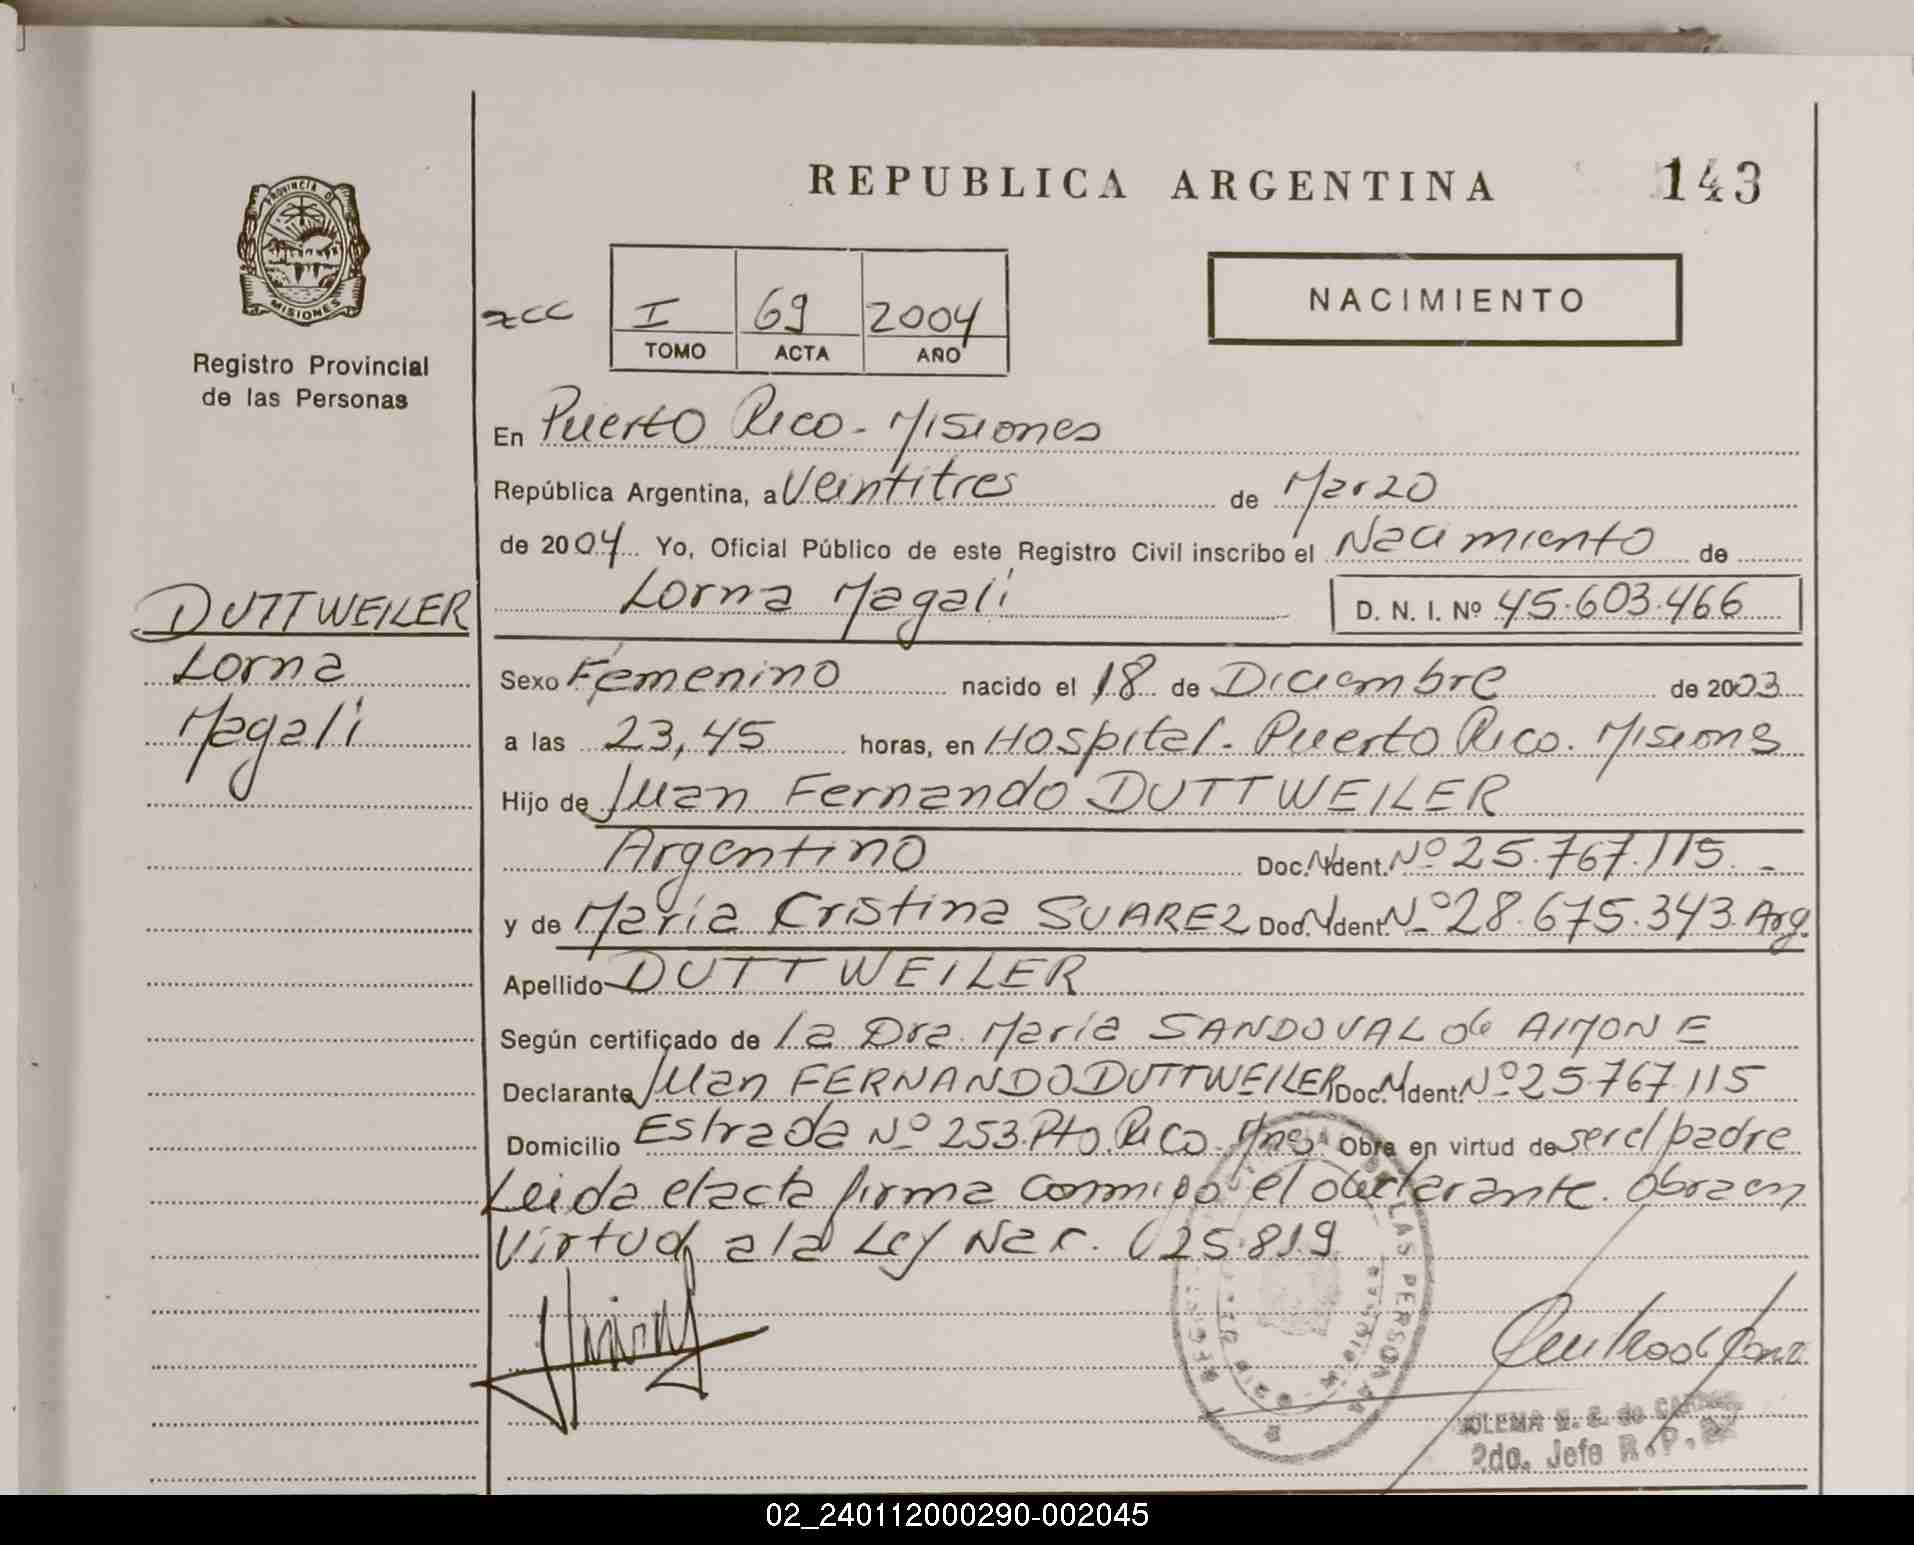 REPUBLICA ARGENTINA
143
PROVINCIA DE
MISIONES
Registro Provincial
de las Personas
I 69 2004
TOMO ACTA AÑO
NACIMIENTO
En Puerto Rico - Misiones
República Argentina, a Veintitres de Marzo
de 2004 Yo, Oficial Público de este Registro Civil inscribo el Nacimiento de
Lorna Magali D. N. I. Nº 45.603.466
DUTTWEILER
Lorna
Magali
Sexo Femenino nacido el 18 de Diciembre de 2003
a las 23,45 horas, en Hospital - Puerto Rico. Misiones
Hijo de Juan Fernando DUTTWEILER
Argentino Doc. Ident. Nº 25.767.115. -
y de María Cristina SUAREZ Doc. Ident. Nº 28.675.343. Arg.
Apellido DUTTWEILER
Según certificado de la Dra. María SANDOVAL de AIMONE
Declarante Juan FERNANDO DUTTWEILER Doc. Ident. Nº 25.767.115
Domicilio Estrada Nº 253. Pto. Rico. Mnes. Obra en virtud de ser el padre
Leida el acta firma conmigo el declarante. Obra en
Virtud a la Ley Nac. 25.819
DE LAS PERSONAS
2do. Jefe R.P.
02_240112000290-002045